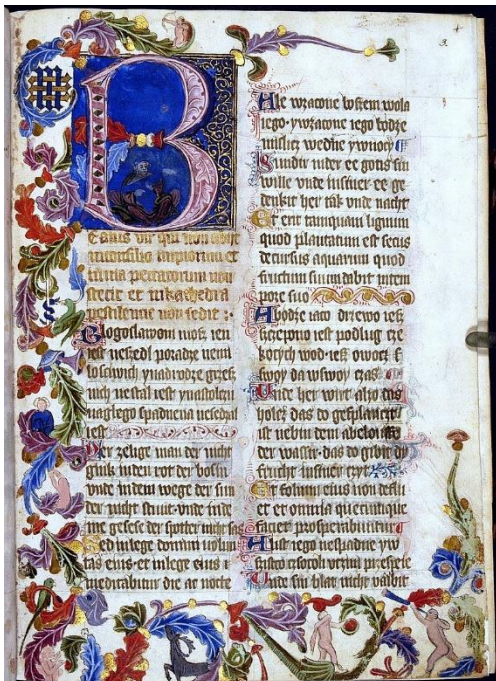 B
Eatus vir qui non abijt
in consilio impiorum et
in via peccatorum non
stetit et in kathedra
pestilencie non sedit :
Blogoslawoni møsz ien
iest ne szedl po radze nemi
loschiwich
nich ne stal iest
naglego spadnena ne sedzal
iest
Der zelige man der nicht
gink in den rot der bosin
vnde in dem wege der sun
der nicht stunt vnde
me gesese der spotter nicht sas
Sed in lege domini volun
tas eius et in lege eius
meditabitur die ac nocte
Ale w zacone bozem wola
iego y w zacone iego bødze
misliz we dne y w nocy
Sundir in der ee gotis sin
wille vnde in siner ee ge
denkit her tak vnde nacht
Et erit tamquam lignum
quod plantatum est secus
decursus aquarum quod
fructum suum dabit in tem
pore suo
A bødze iaco drzewo iesz
szczepono iest podlug cze
kocych wod iesz owocz
swoy da w swoy czas
Vnde her wirt also das
holcz das do geplanczit
ist nebin dem
der wassir das do gibit
frucht in siner czyt
Et folium eius non deflu
et et omnia quecumque
faciet prosperabuntur
A list iego ne spadne y w
szistco czsocoli vczini przespeie
Vnde sin blat nicht valbit